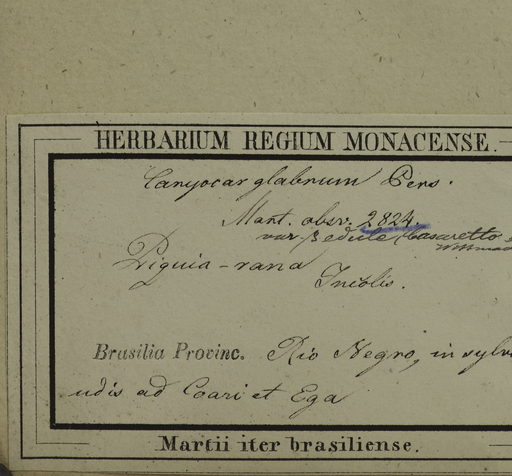 HERBARIUM REGIUM MONACENSE.
Caryocar glabrum Pers.
Mart. obsv. 2824.
var β edule (Casaretto)
Piquia-rana
Incolis.
Brasilia Provinc. Rio Negro, in sylv
udis ad Coari et Ega
Martii iter brasiliense.